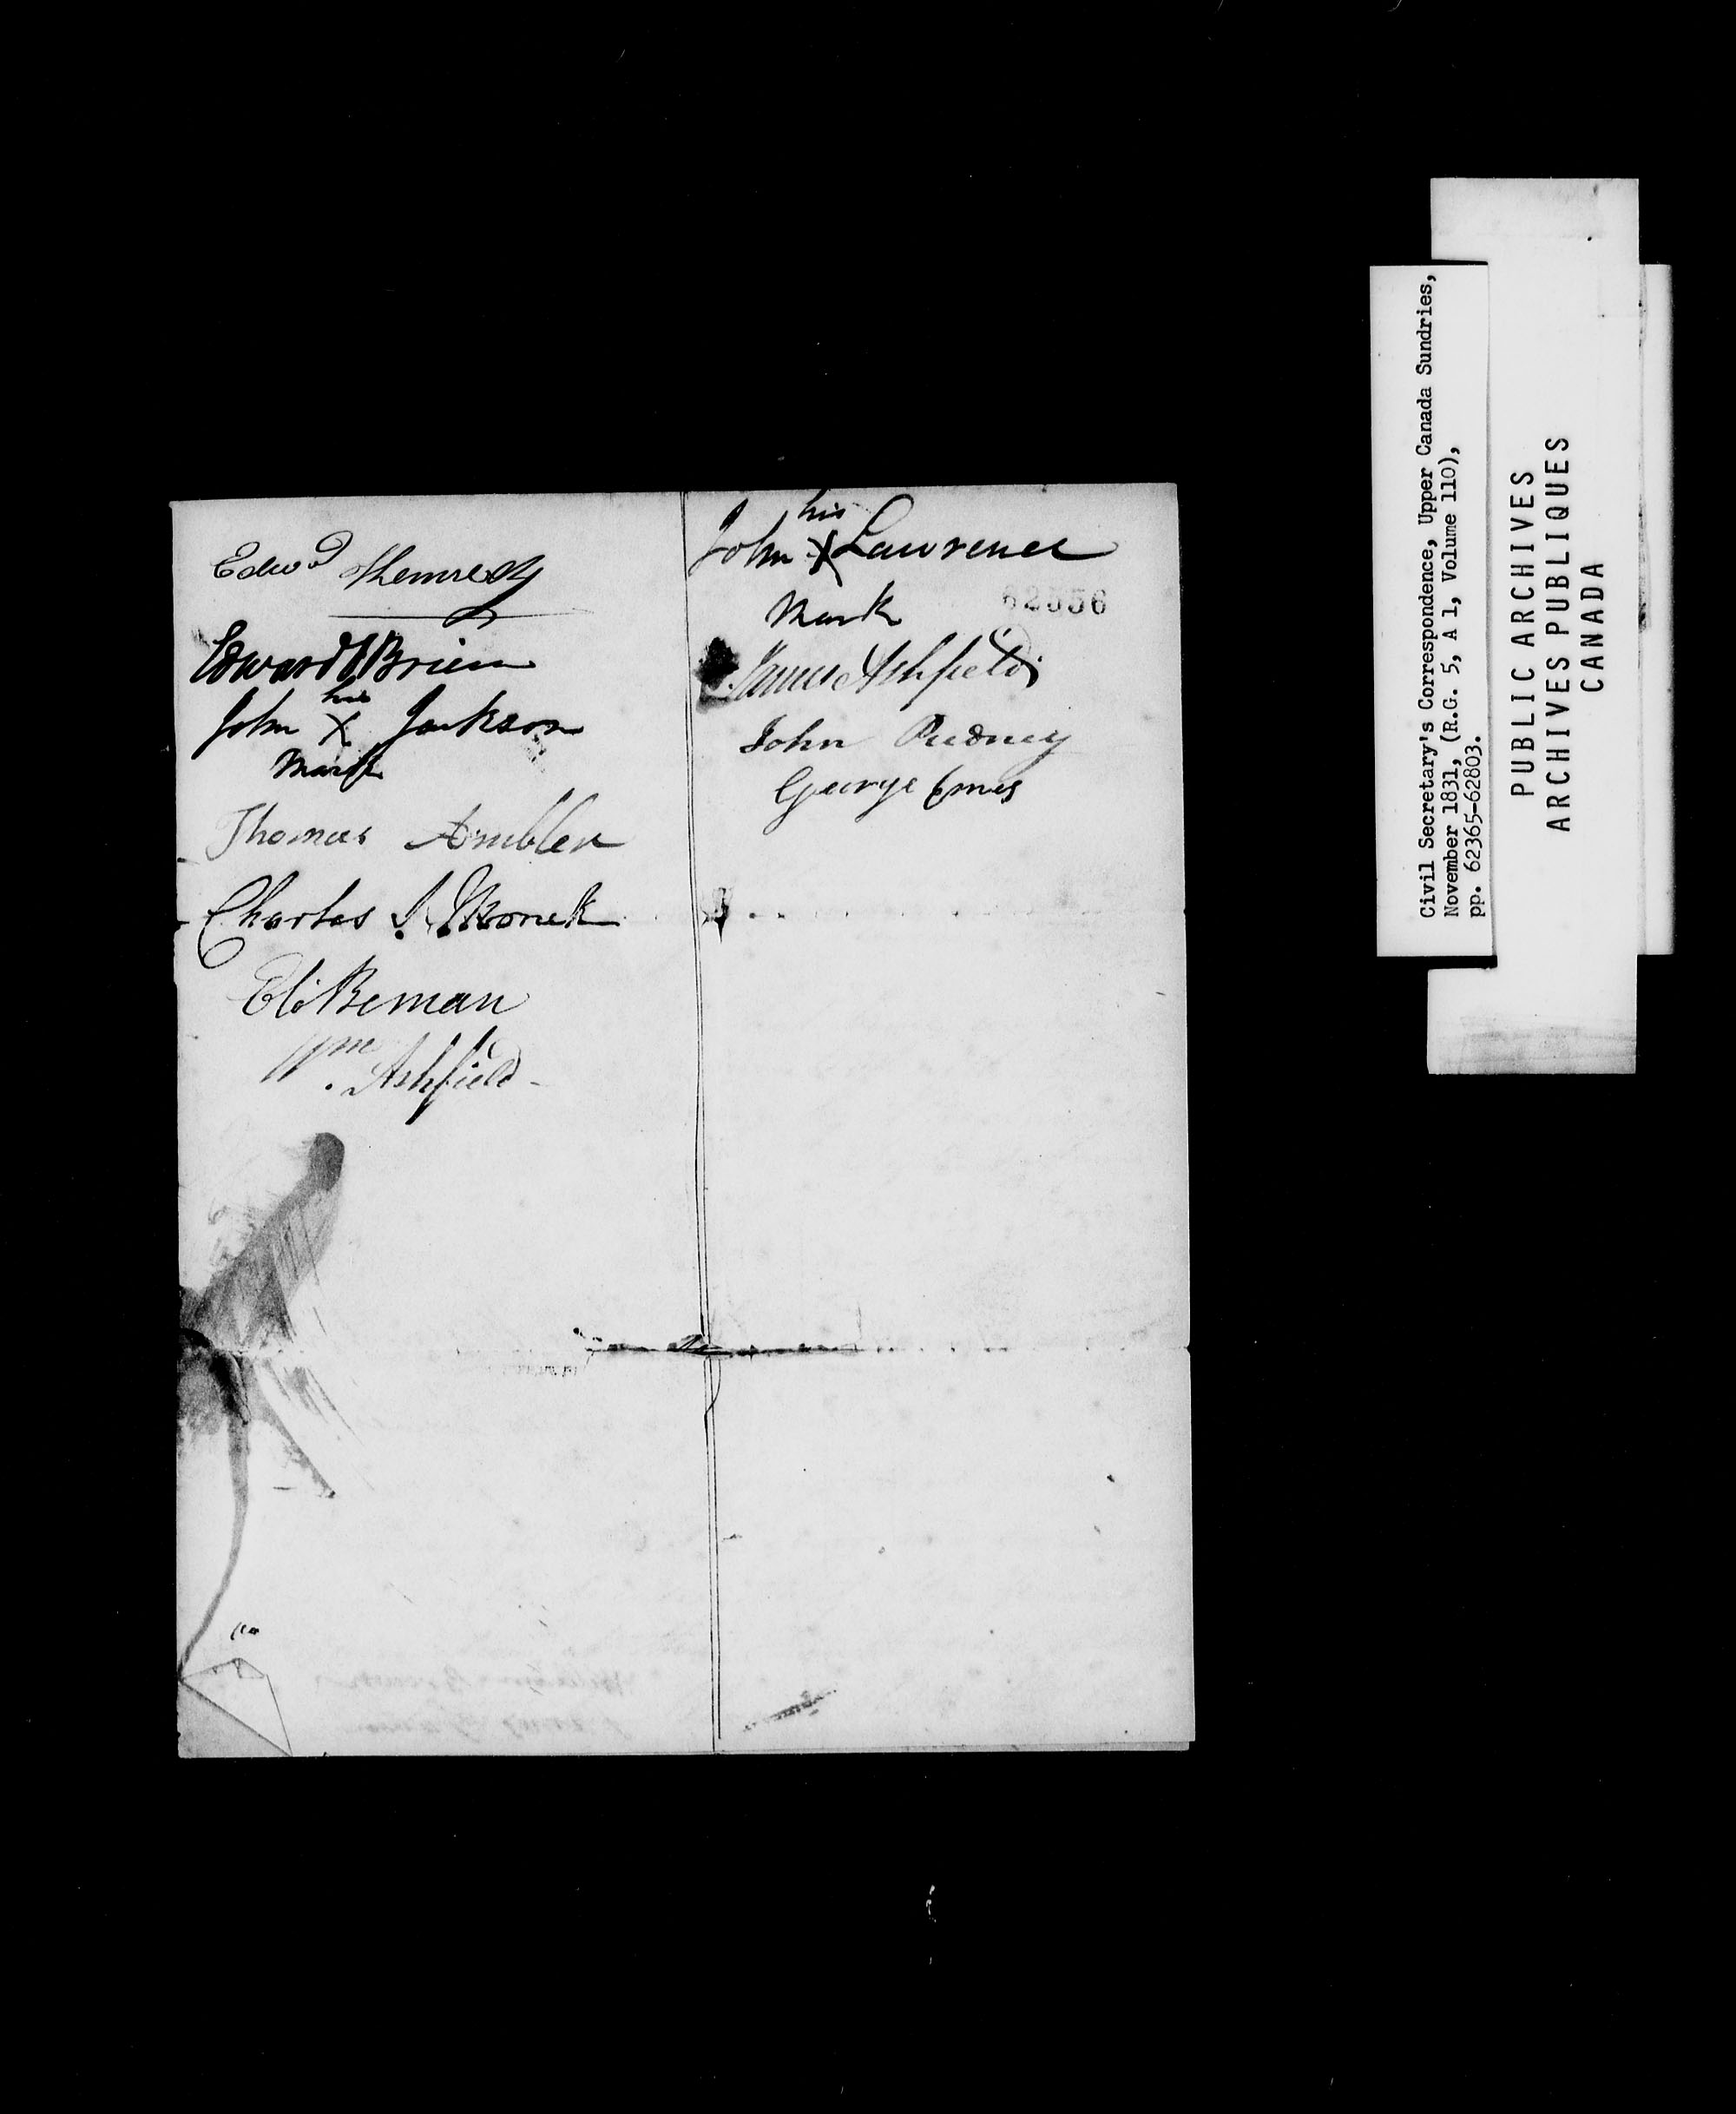 Edwd
Edward OBrien
his
John X Jackson
Mark
Thomas Ambler
Charles J. Monck
Eli Beman
Wm. Ashfield
his
John X Lawrence
Mark
62556
James Ashfield
John Pudney
George Emes
Civil Secretary's Correspondence, Upper Canada Sundries,
November 1831, (R.G. 5, A 1, Volume 110),
pp. 62365-62803.
PUBLIC ARCHIVES
ARCHIVES PUBLIQUES
CANADA